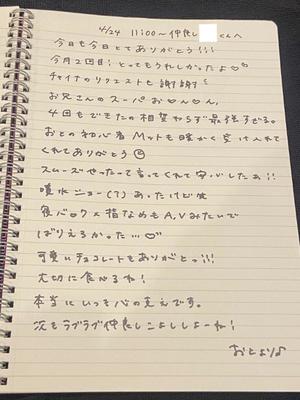 4/24 11:00〜 仲良し くんへ
今日も今日とてありがとう!!!
今月2回目!とってもうれしかったよ♡♡
チャイナのリクエストも謝謝
お兄さんのスーパーお♡ん♡ん、
4回もできた相変わらず最強すぎる。
おとの初心者Mっトも暖かく受け入れて
くれてありがとう
スムーズやったって言ってくれて安心したぁ!!
噴水ショー(?)あったけど
食バロック×指なめもA,Vみたいで
ばりえろかった…♡
可愛いチョコレートもありがとっ!!!
大切に食べるね!
本当にいつも心の支えです。
次もラブラブ仲良しこよししよーね!
おとより♪